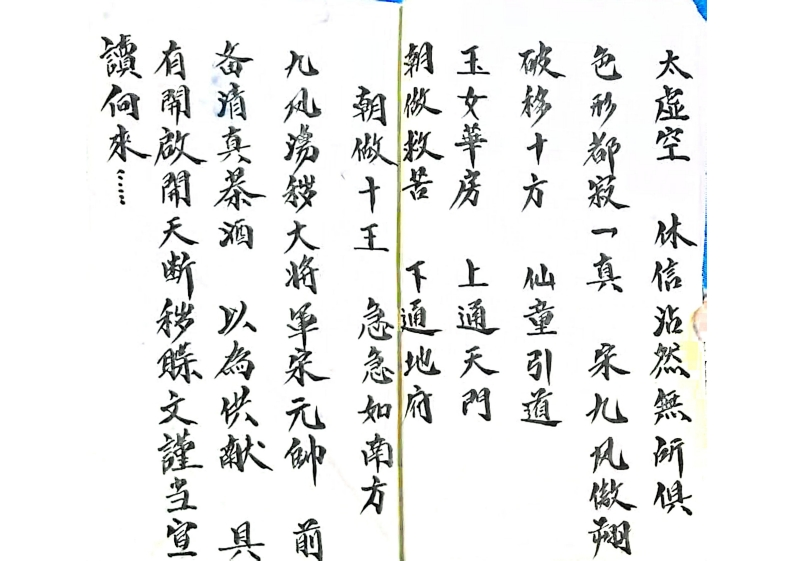 太虛空　休信沾然無所俱
色形都寂一真　宋九凤傲翔
破移十方　仙童引道
玉女華房　上通天門
朝傲救苦　下通地府
朝傲十王　急急如南方
九凤瀉穢大将軍宋元帥　前
各清真慕酒　以為供献　具
有開啟開天断穢牒文謹当宣
讀何來……